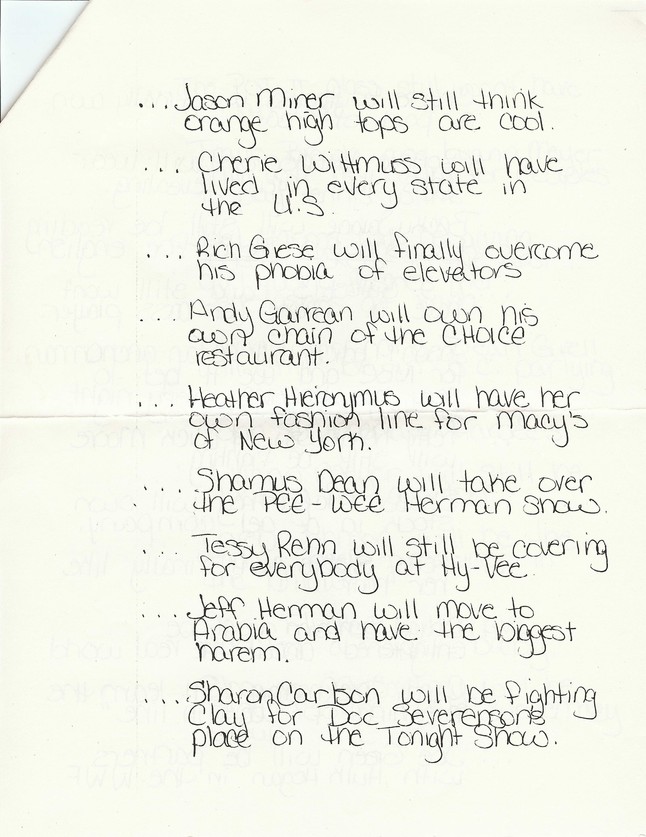 ...Jason Miner will still think
orange high tops are cool.
... Cherie Wittmuss will have
lived in every state in
the U.S.
... Rich Giese will finally overcome
his phobia of elevators
... Andy Garrean will own his
own chain of the CHOICE
restaurant.
... Heather Hieronymus will have her
own fashion line for Macy's
of New York.
.... Shamus Dean will take over
the PEE-WEE Herman Show.
... Tessy Rehn will still be covering
for everybody at Hy-Vee.
....Jeff Herman will move to
Arabia and have the biggest
harem.
....Sharon Carlson will be fighting
Clay for Doc Severenson's
place on the Tonight Show.